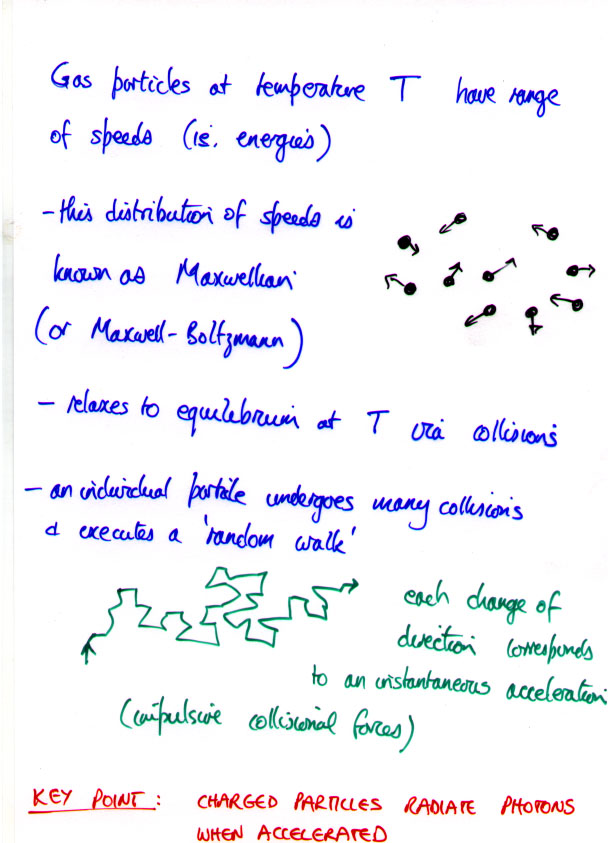 Gas particles at temperature T have range
of speeds (ie. energies)
- this distribution of speeds is
known as Maxwellian
(or Maxwell-Boltzmann)
- relaxes to equilibrium at T via collisions
- an individual particle undergoes many collisions
& executes a 'random walk'
each change of
direction corresponds
to an instantaneous acceleration
(impulsive collisional forces)
KEY POINT: CHARGED PARTICLES RADIATE PHOTONS
WHEN ACCELERATED